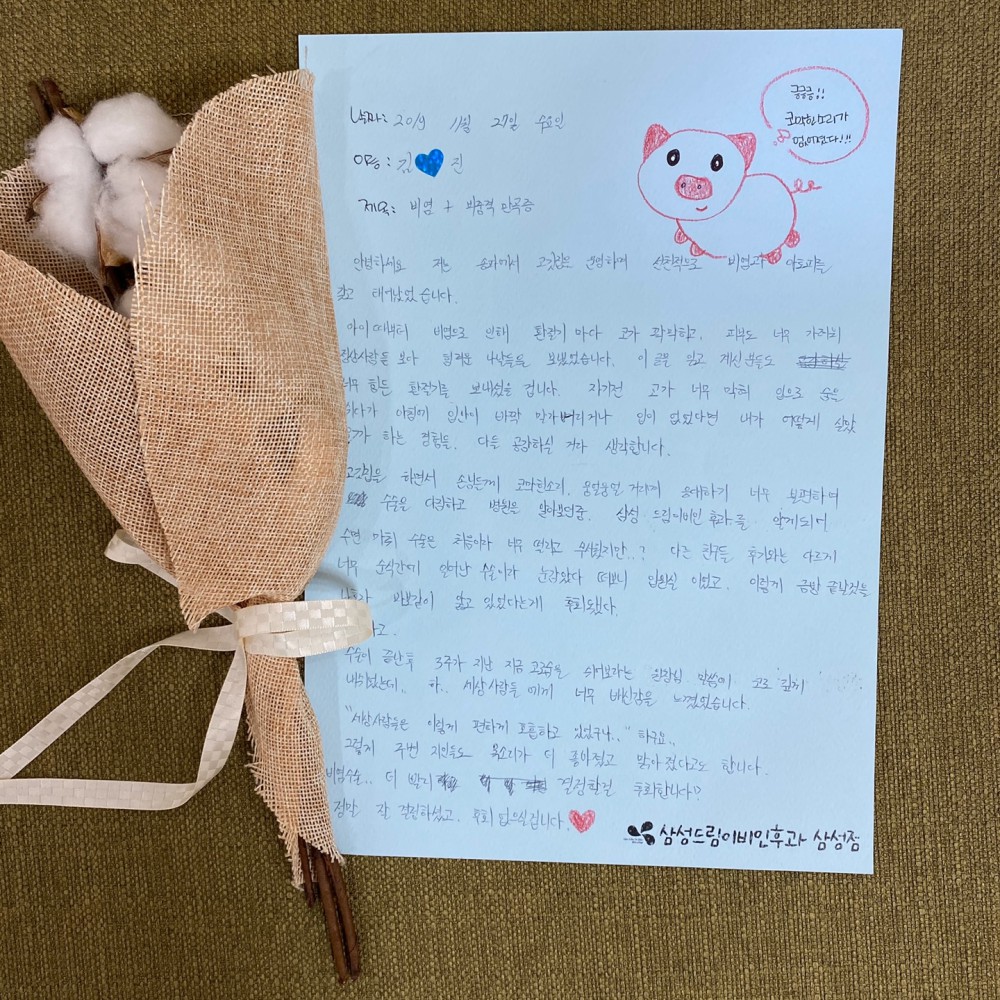 날짜: 2019 11월 27일 수요일
이름: 김 진
제목: 비염 + 비중격 만곡증
킁킁킁!!
코막힌소리가
없어졌다!!!
안녕하세요 저는 송파에서 고깃집을 운영하며 선천적으로 비염과 아토피를
갖고 태어났었습니다.
아이때부터 비염으로 인해 환절기마다 코가 꽉막히고, 피부도 너무 가려워
사람들 보다 힘겨운 나날들을 보냈었습니다. 이 글을 읽고 계신분들도
너무 힘든 환절기를 보내셨을 겁니다. 자기전 코가 너무 막혀 입으로 숨은
쉬다가 아침에 입안이 바짝 말라버리거나 입이 없었다면 내가 어떻게 살았
을까 하는 경험들. 다들 공감하실 거라 생각합니다.
고깃집을 하면서 손님들께 코막힌소리, 웅얼웅얼 거리며 응대하기 너무 불편하여
수술을 다짐하고 병원을 알아보던중, 삼성 드림이비인후과를 알게되어
수면 마취 수술은 처음이라 너무 떨리고 무서웠지만..? 다른 친구들 후기와는 다르게
너무 순식간에 일어난 수술이라 눈감았다 떠보니 입원실 이었고, 이렇게 금방 끝날것을
바보같이 앓고 있었다는게 후회됐다.
수술이 끝난후 3주가 지난 지금 코로숨을 쉬어보라는 원장님 말씀에 코로 깊게
내쉬었는데.. 하.. 세상사람들에게 너무 배신감을 느꼈었습니다.
"세상사람들은 이렇게 편하게 호흡하고 있었구나.." 하구요..
그렇지 주변 지인들도 목소리가 더 좋아졌고 맑아졌다고도 합니다.
비염수술.. 더 빨리 결정할걸 후회합니다?
정말 잘 결정하셨고, 후회 없으실겁니다.
삼성드림이비인후과 삼성점